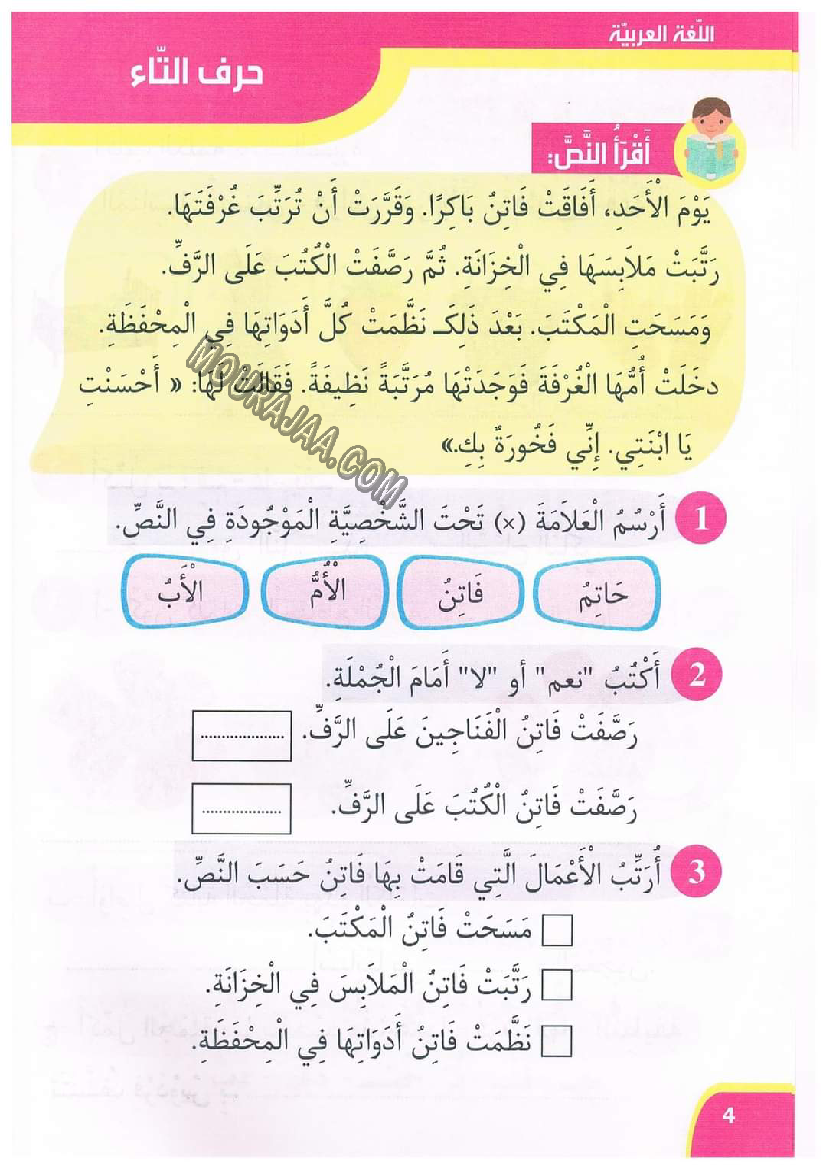 اللّغة العربيّة
حرف التّاء
أَقْرَأُ النَّصَّ:
يَوْمَ الْأَحَدِ، أَفَاقَتْ فَاتِنُ بَاكِرًا. وَقَرَّرَتْ أَنْ تُرَتِّبَ غُرْفَتَهَا.
رَتَّبَتْ مَلَابِسَهَا فِي الْخِزَانَةِ. ثُمَّ رَصَّفَتْ الْكُتُبَ عَلَى الرَّفِّ.
وَمَسَحَتِ الْمَكْتَبَ. بَعْدَ ذَلِكَـ نَظَّمَتْ كُلَّ أَدَوَاتِهَا فِي الْمِحْفَظَةِ.
دخَلَتْ أُمُّهَا الْغُرْفَةَ فَوَجَدَتْهَا مُرَتَّبَةً نَظِيفَةً. فَقَالَتْ لَهَا: « أَحْسَنْتِ
يَا ابْنَتِي. إِنِّي فَخُورَةٌ بِكِ.»
MOURAJAA.COM
1 أَرْسُمُ الْعَلَامَةَ (×) تَحْتَ الشَّخْصِيَّةِ الْمَوْجُودَةِ فِي النَّصِّ.
حَاتِمُ فَاتِنُ الْأُمُّ الْأَبُ
2 أَكْتُبُ "نعم" أو "لا" أَمَامَ الْجُمْلَةِ.
رَصَّفَتْ فَاتِنُ الْفَنَاجِينَ عَلَى الرَّفِّ. ....................
رَصَّفَتْ فَاتِنُ الْكُتُبَ عَلَى الرَّفِّ. ...................
3 أُرَتِّبُ الْأَعْمَالَ الَّتِي قَامَتْ بِهَا فَاتِنُ حَسَبَ النَّصِّ.
مَسَحَتْ فَاتِنُ الْمَكْتَبَ.
رَتَّبَتْ فَاتِنُ الْمَلَابِسَ فِي الْخِزَانَةِ.
نَظَّمَتْ فَاتِنُ أَدَوَاتِهَا فِي الْمِحْفَظَةِ.
4